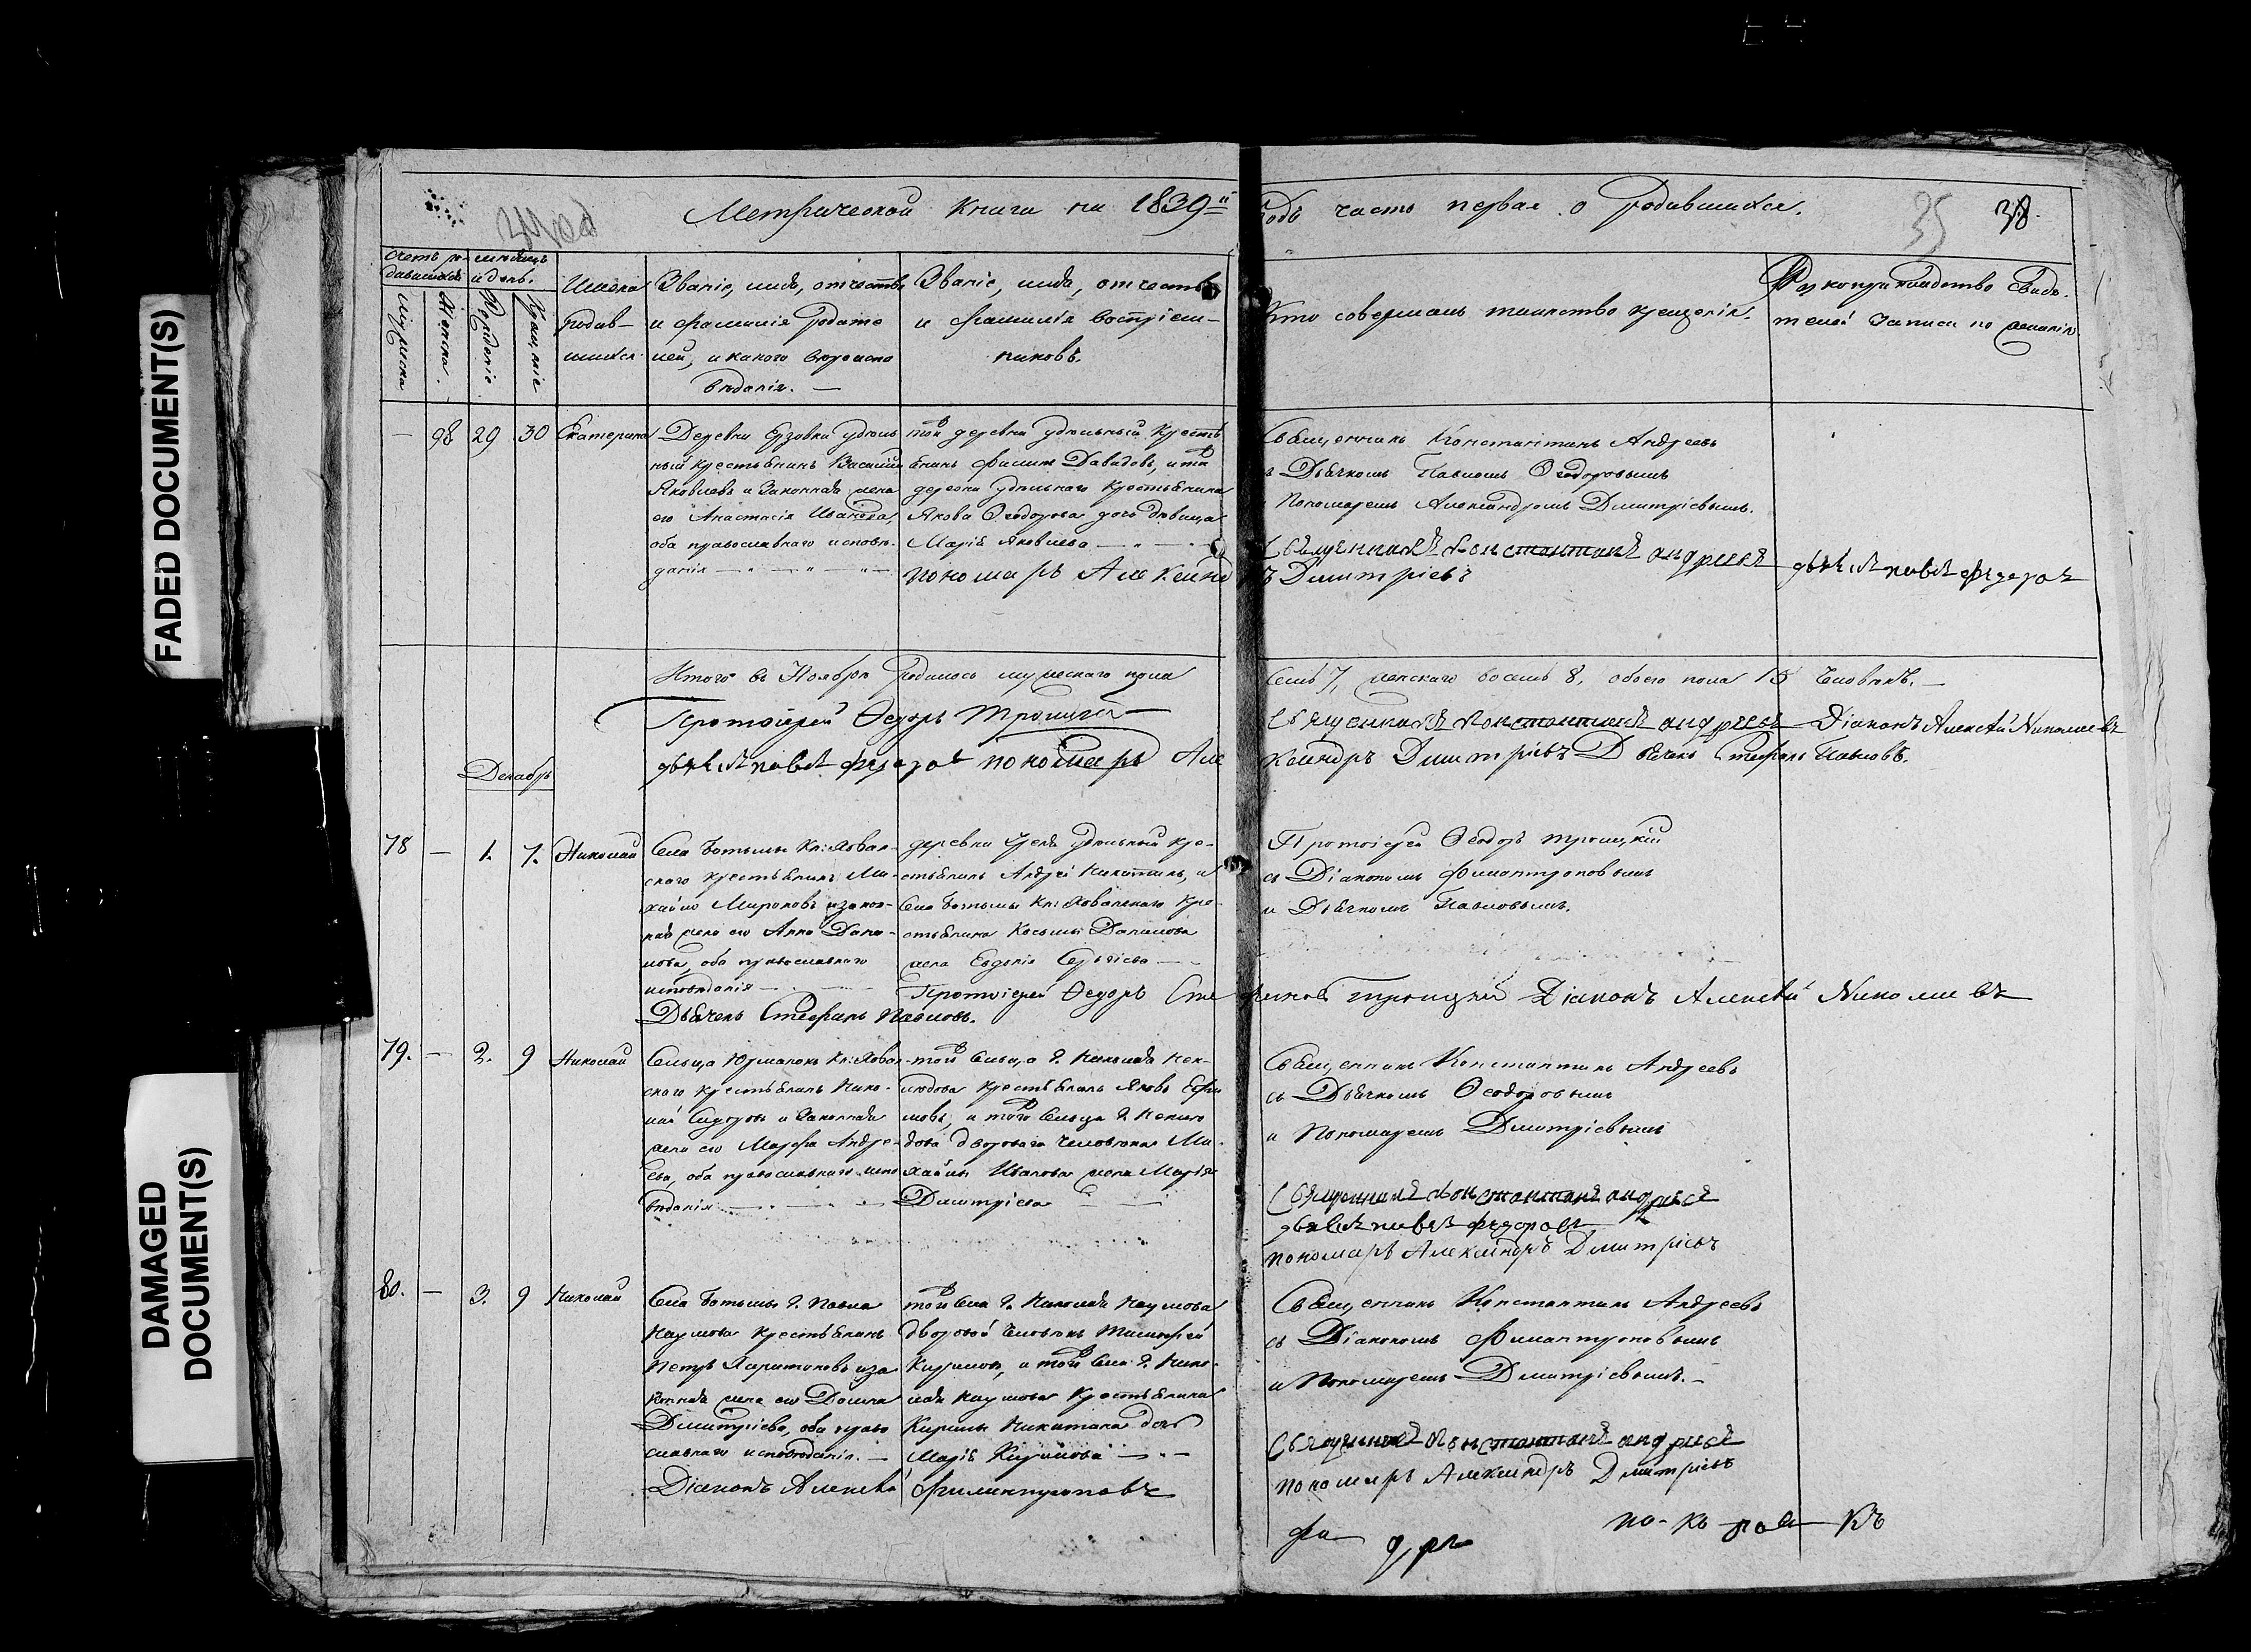 FADED DOCUMENT(S)
DAMAGED
DOCUMENT(S)
Метрической Книги на 1839й
Года часть первая о Родившихся.
35
38.
Счетъ ро-
дившихся
мѣсяцъ
и день.
Мужеска
Женска.
Рожденіе
Крещеніе
Имена
Родив-
шихся
Званіе, имя, отчество
и фамилія Родите
лей, и какого вѣроиспо
вѣданія. —
Званіе, имя, отчество
и фамилія воспріем-
никовъ.
Кто совершалъ таинство крещенія.
Рукоприкладство свидѣ-
телей записи по желанію
— 98 29 30 Екатерина
Деревни Ерзовки удѣль
ный крестьянинъ Василій
Яковлевъ и Законная жена
его Анастасія Иванова,
оба православнаго исповѣ-
данія
той деревни удѣльный Кресть
янинъ Филипъ Давидовъ, и той
деревни удѣльнаго Крестьянина
Якова Ѳеодорова дочь дѣвица
Марія Яковлева
Священникъ Константинъ Андреевъ
съ Дьячкомъ Павломъ Ѳеодоровымъ
и Пономаремъ Александромъ Димитріевымъ.
Священникъ Константинъ андреевъ дьячекъ павелъ федоровъ
пономарь Александръ Димитріевъ
Итого въ Ноябрѣ Родилось мужескаго пола
семь 7, женскаго восемь 8, обоего пола 15 Человѣкъ. —
Протоіерей Ѳедоръ Троицкій
Священникъ Константинъ андреевъ Діаконъ Алексѣй Николаевъ
дьячекъ павелъ федоровъ пономарь Александръ Димитріевъ Дьячекъ Стефанъ Павловъ.
Декабрь
78 — 1. 7. Николай
Села Ботьмы Кн: Хован-
скаго крестьянинъ Ми-
хайло Мироновъ и закон-
ная жена его Анна Дани-
лова, оба православнаго
исповѣданія
деревни удѣльный кре-
стьянинъ Андрей Никитинъ, и
Села Ботьмы Кн: Хованскаго Кре-
стьянина Косьмы Данилова
жена Евдокія Сергіева
Протоіерей Ѳеодоръ Троицкій
съ Діакономъ Филантроповымъ
и Дьячкомъ Павловымъ.
Протоіерей Ѳедоръ Троицкій Діаконъ Алексѣй Николаевъ
Дьячекъ Стефанъ Павловъ.
79. — 2. 9 Николай
Сельца Юрманокъ Кн: Хован-
скаго крестьянинъ Нико-
лай Сидоровъ и Законная
жена его Марфа Андре-
ева, оба православнаго испо
вѣданія
той Сельца г. Николая Нек-
людова крестьянинъ Яковъ Ефи
мовъ, и того Сельца г. Неклю
дова двороваго человѣка Ми-
хайлы Иванова жена Марія
Димитріева
Священникъ Константинъ Андреевъ
съ Дьячкомъ Ѳеодоровымъ
и Пономаремъ Димитріевымъ
Священникъ Константинъ андреевъ
дьячекъ павелъ федоровъ
пономарь Александръ Димитріевъ
80. — 3. 9 Николай
Села Ботьмы г. Павла
Наумова крестьянинъ
Петръ Харитоновъ и за
конная жена его Домна
Димитріева, оба право
славнаго исповѣданія. —
той Села г. Николая Наумова
дворовой человѣкъ Тимофей
Кириловъ, и той Села г. Нико-
лая Наумова Крестьянина
Кирилы Никитина дочь
Марія Кирилова
Священникъ Константинъ Андреевъ
съ Діакономъ Филантроповымъ
и Пономаремъ Димитріевымъ. —
Священникъ Константинъ андреевъ
пономарь Александръ Димитріевъ
Діаконъ Алексѣй Филантроповъ